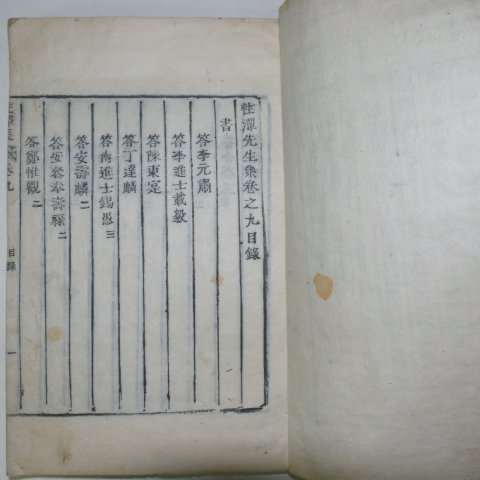 性潭先生集卷之九目錄
書
答李元肅
答李進士載毅
答陳東寔
答丁達麟
答南進士錫愚 三
答安壽麟 二
答安參奉壽祿 二
答鄭惟觀 二
目錄
一